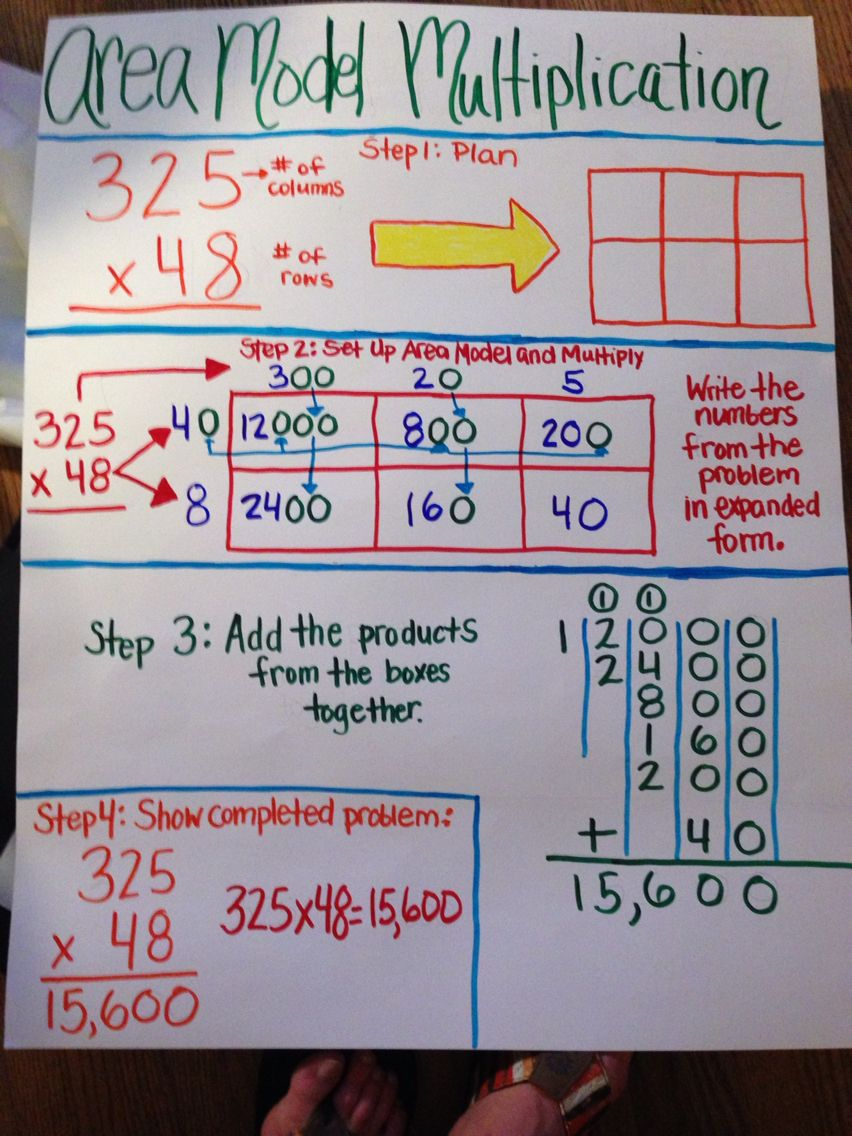 Area Model Multiplication
Step 1: Plan
325 → # of columns
x 48 # of rows
Step 2: Set Up Area Model and Multiply
300 20 5
325 40 12000 800 200
x 48 8 2400 160 40
Write the
numbers
from the
problem
in expanded
form.
Step 3: Add the products
from the boxes
together.
1 1
12000
2400
800
160
200
+ 40
15,600
Step 4: Show completed problem:
325
x 48
15,600
325x48=15,600